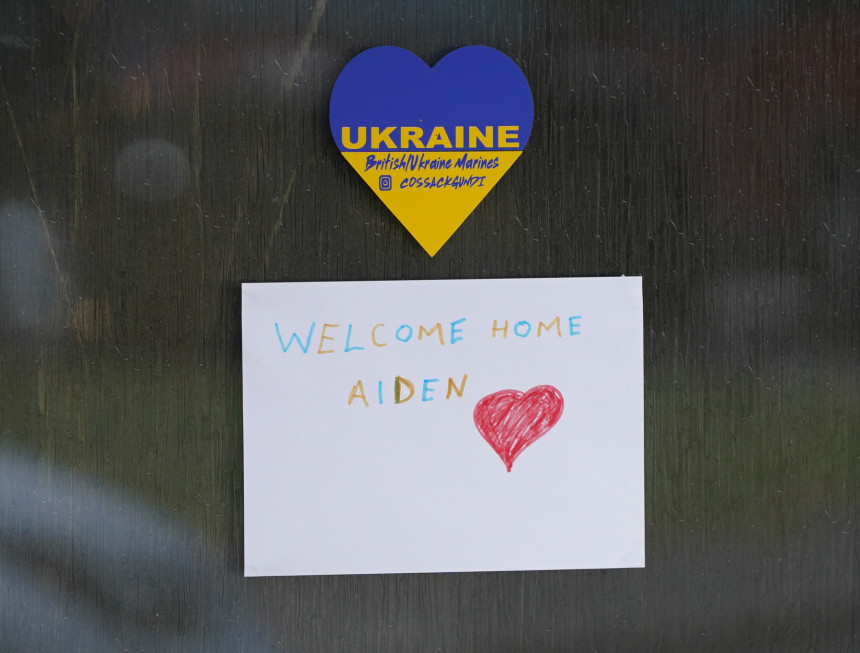 UKRAINE
British/Ukraine Marines
COSSACKGUNDI
WELCOME HOME
AIDEN